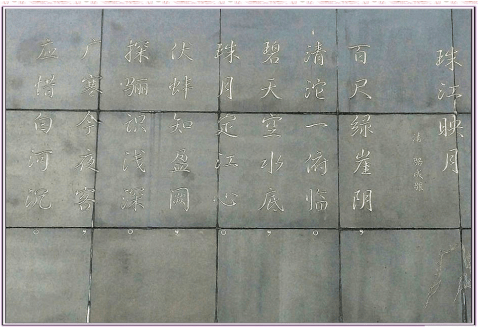 珠江映月
清 骆成骧
百尺绿崖阴，
清沱一俯临。
碧天空水底，
珠月定江心。
伏蚌知盈阙，
探骊识浅深。
广寒今夜客，
应惜白河沉。